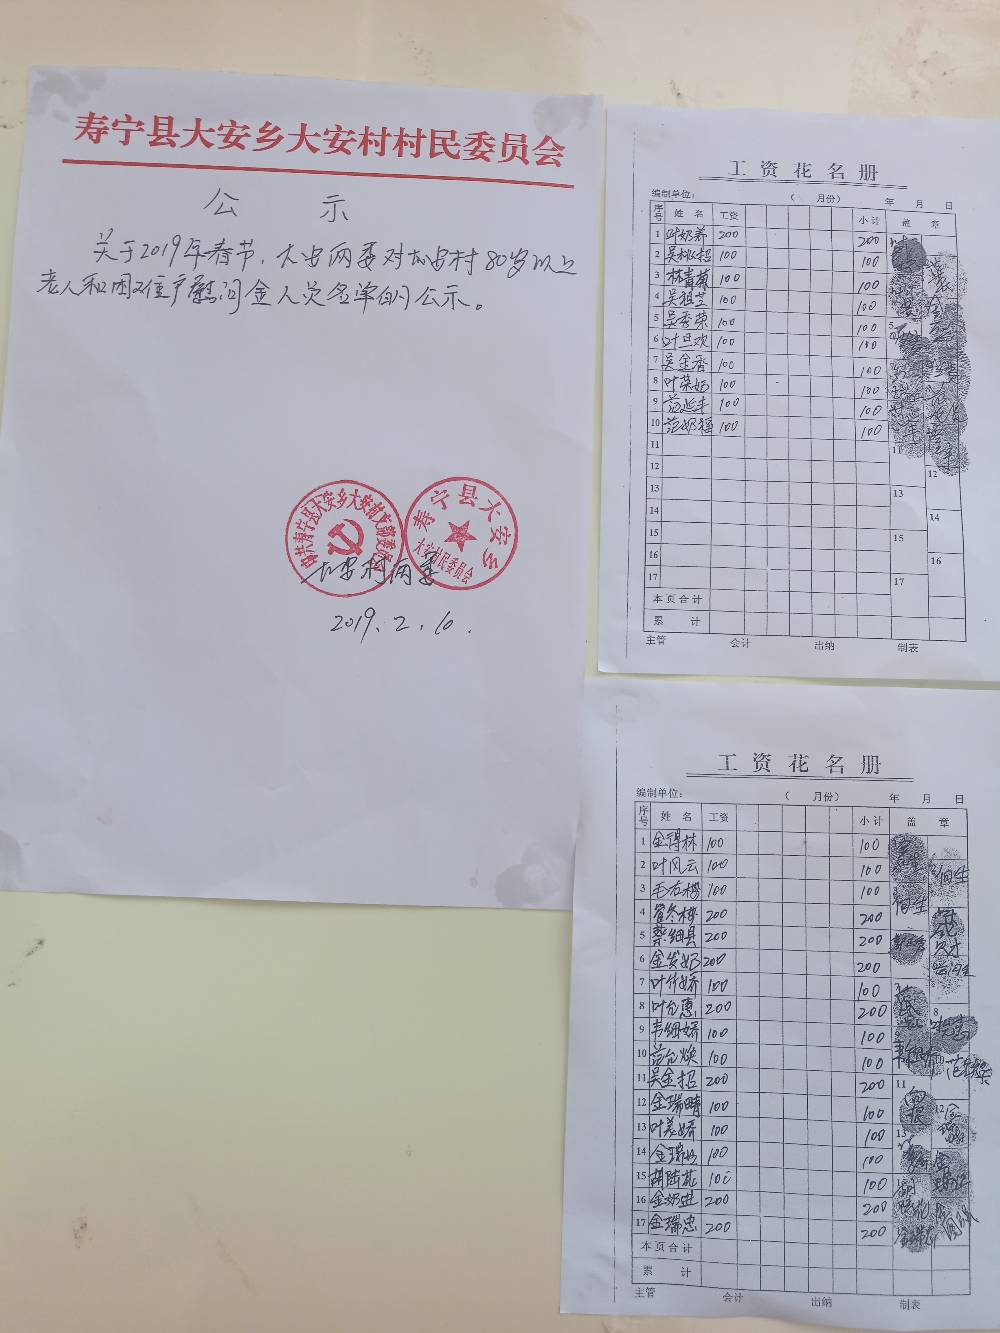 寿宁县大安乡大安村村民委员会
公 示
关于2019年春节,大安两委对大安村80岁以上
老人和困难住户慰问金人员名单的公示。
中共寿宁县大安乡大安村支部委员会
寿宁县大安乡
大安村民委员会
大安村两委
2019.2.10.
工资花名册
编制单位: ( 月份) 年 月 日
序号 姓名 工资 小计 盖章
1 叶奶养 200 200
2 吴桃招 100 100
3 林青菊 100 100
4 吴祖芝 100 100
5 吴秀荣 100 100
6 叶旦欢 100 100
7 吴金香 100 100
8 叶荣妫 100 100
9 范延丰 100 100
10 范奶福 100 100
11 11
12 12
13 13
14 14
15 15
16 16
17 17
本页合计
累 计
主管 会计 出纳 制表
工资花名册
编制单位: ( 月份) 年 月 日
序号 姓名 工资 小计 盖章
1 金得林 100 100
2 叶风云 100 100
3 毛石梅 100 100
4 管冬梅 200 200
5 蔡细县 200 200
6 金发奶 200 200
7 叶竹娇 100 100
8 叶允惠 200 200 8
9 韦细娇 100 100
10 范允焕 100 100
11 吴金招 200 200 11
12 金瑞晴 100 100 12
13 叶美娇 100 100 13
14 金瑞 100 100
15 胡陆花 100 100
16 金奶进 200 200
17 金瑞忠 200 200
本页合计
累 计
主管 会计 出纳 制表